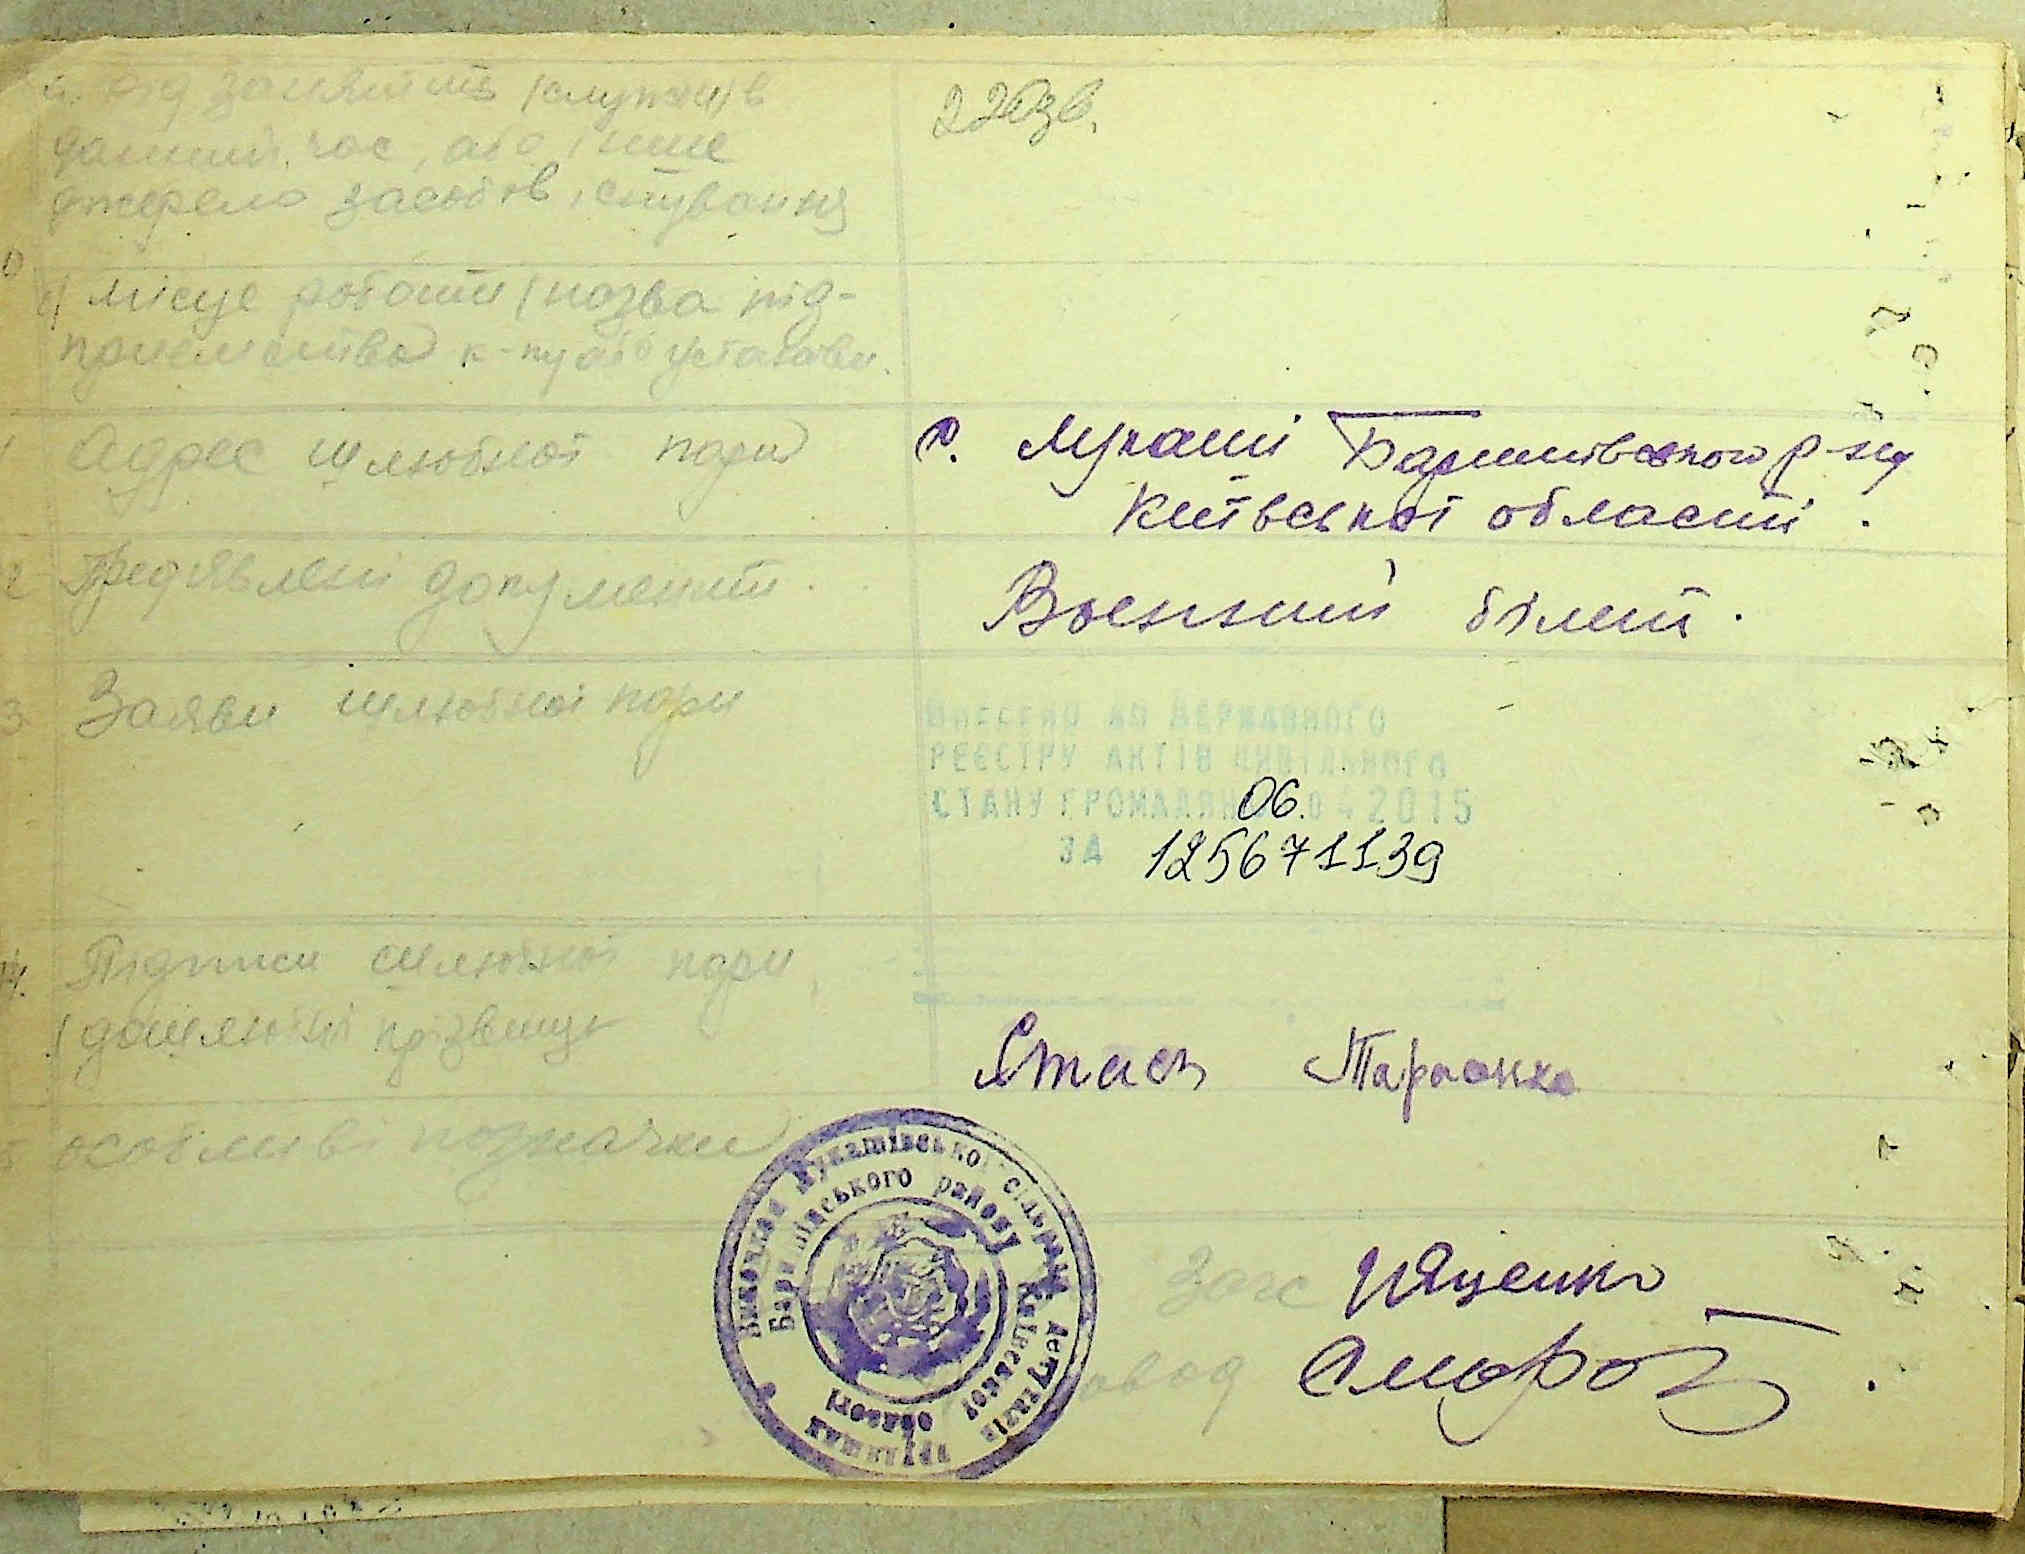 занять (служби) в
даний час, або інше
джерело засобів існування
с) місце роботи (назва під-
приємства к-пу або установи.
Адрес шлюбної пари
с. Лукаші Баришівського р-ну
Київської області.
Предявлені документи.
Воєнний білет.
3 Заяви шлюбної пари
ВНЕСЕНО ДО ДЕРЖАВНОГО
РЕЄСТРУ АКТІВ ЦИВІЛЬНОГО
СТАНУ ГРОМАДЯН 06.04 2015
ЗА 125671139
14. Підписи шлюбної пари
(дошлюбні прізвища
особливі позначки
Виконавчий Лукашівської сільради депутатів трудящих
Баришівського району Київської області
Загс Іященко